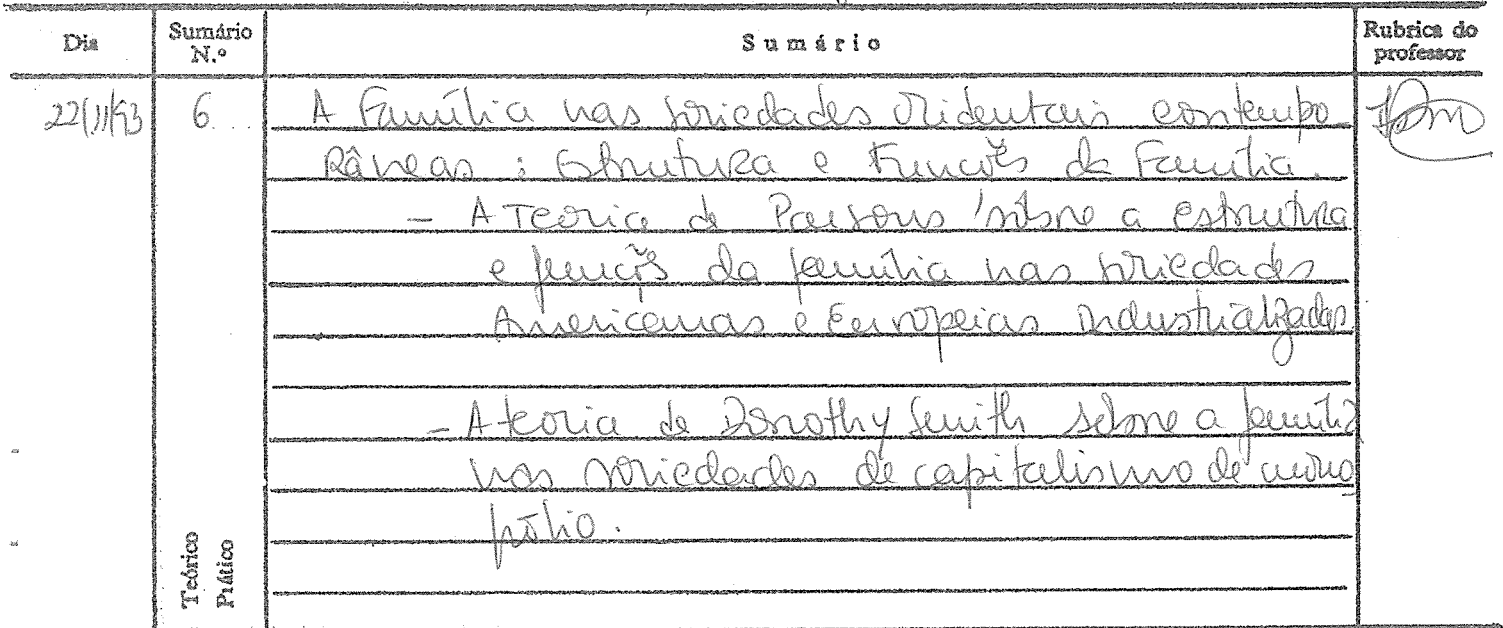 Dia Sumário N.º Sumário Rubrica do professor
22/11/93 6 A Família nas sociedades ocidentais contempo
râneas : Estrutura e Funções da Família.
- A Teoria de Parsons sobre a estrutura
e funções da família nas sociedades
Americanas e Europeias Industrializadas
- A teoria de Dorothy Smith sobre a família
nas sociedades de capitalismo de mono
pólio.
Teórico
Prático